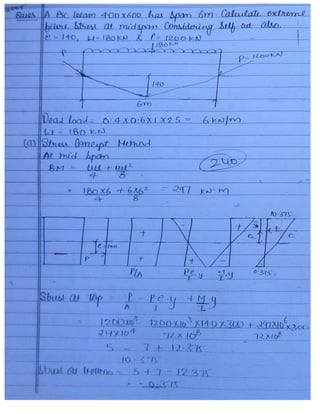 2005
Ques. A PSC beam 400x600 has span 6m Calculate extreme
fibre Stress at midspan Considering Self wt. also.
e = 140, W = 180 KN & P = 1200 KN
180KN
P
P = 1200KN
140
6m
Dead load = 0.4 x 0.6 x 1 x 25 = 6 KN/m
W = 180 KN
(a) Stress Concept Method
At mid span
240
BM = WL/4 + wl²/8
= 180x6/4 + 6x6²/8 = 297 KN-m
10.375
P
P/A
Pe/I y
M/I y
0.375
Stress at top = P/A - P.e/I y + M/I y
= 1200x10³/24x10⁴ - 1200x10³x140x300/72x10⁸ + 297x10⁶x300/72x10⁸
5 - 7 + 12.375
10.375
Stress at bottom = 5 + 7 - 12.375
= -0.375